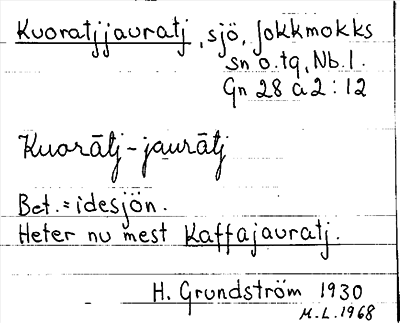 Kuoratjjauratj, sjö, Jokkmokks
sn o. tg, Nb. l.
Gn 28 a 2 : 12
Kuorātj-jaurātj
Bet. = idesjön.
Heter nu mest Kaffajauratj.
H. Grundström 1930
M.L. 1968